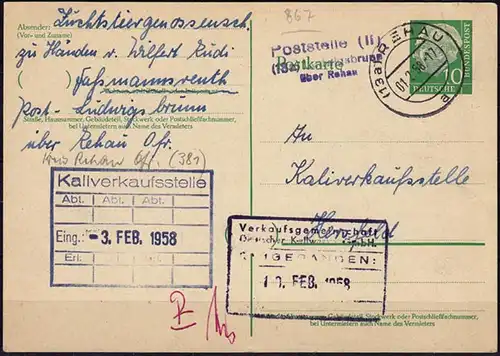 867
Absender: Zuchtstiergenossensch.
(Vor- und Zuname)
zu Händen v. Wilfert Rudi
( ) Faßmannsreuth
Post - Ludwigsbrunn
Straße, Hausnummer, Gebäudeteil, Stockwerk oder Postschließfachnummer,
bei Untermietern auch Name des Vermieters
über Rehau Ofr.
Krs Rehau Ofr. (381)
Kaliverkaufsstelle
Abt. Abt. Abt.
Eing.: -3. FEB. 1958
Erl.:
Poststelle (II)
Postkarte
(13a) Ludwigsbrunn
über Rehau
(13a) REHAU
DEUTSCHE BUNDESPOST
10
An
Kaliverkaufsstelle
Hersfeld
Verkaufsgemeinschaft
Deutscher Kaliwerke GmbH.
EINGEGANGEN:
10. FEB. 1958
Straße, Hausnummer, Gebäudeteil, Stockwerk oder Postschließfachnummer,
bei Untermietern auch Name des Vermieters